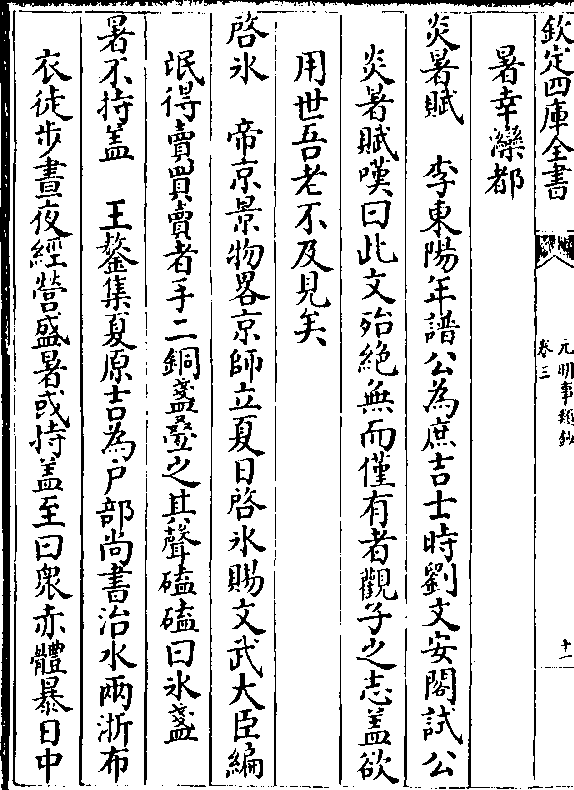 欽定四庫全書
元明事類鈔
卷三
十一
暑幸灤都
炎暑賦　李東陽年譜公為庶吉士時劉文安閣試公
炎暑賦嘆曰此文殆絶無而僅有者觀子之志盖欲
用世吾老不及見矣
啓氷　帝京景物畧京師立夏日啓氷賜文武大臣編
氓得賣買賣者手二銅盞疊之其聲磕磕曰氷盞
暑不持盖　王鏊集夏原吉為户部尚書治水兩浙布
衣徒步晝夜經營盛暑或持盖至曰衆赤體暴日中